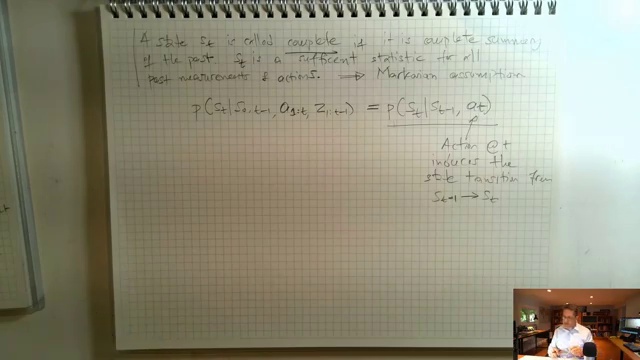 A state St is called complete if it is complete summary
of the past St is a sufficient statistic for all
past measurements & actions. ⟹ Markovian assumption
p(St|S0:t-1, a1:t, z1:t-1) = p(St|St-1, at)
Action @ t
induces the
state transition from
St-1 → St